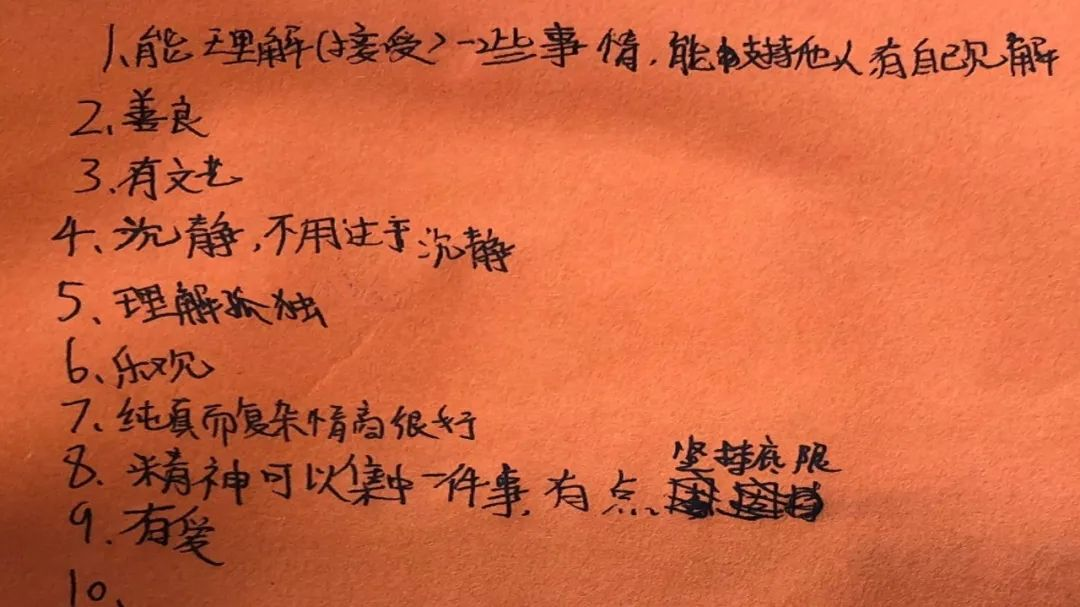 1、能理解(接受)一些事情,能支持他人,有自己见解
2、善良
3、有文艺
4、沉静,不用过于沉静
5、理解孤独
6、乐观
7、纯真而复杂情商很好
坚持底限
8、精神可以集中一件事,有点
9、有爱
10、